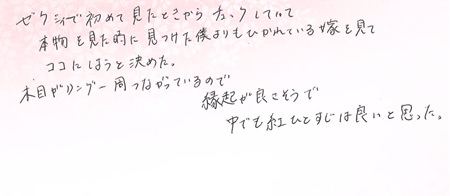 ゼクシィで初めて見たときからチェックしていて
本物を見た時に見つけた僕よりもひかれている嫁を見て
ココにしようと決めた。
木目がリング一周つながっているので
縁起が良さそうで
中でも紅ひとすじは良いと思った。